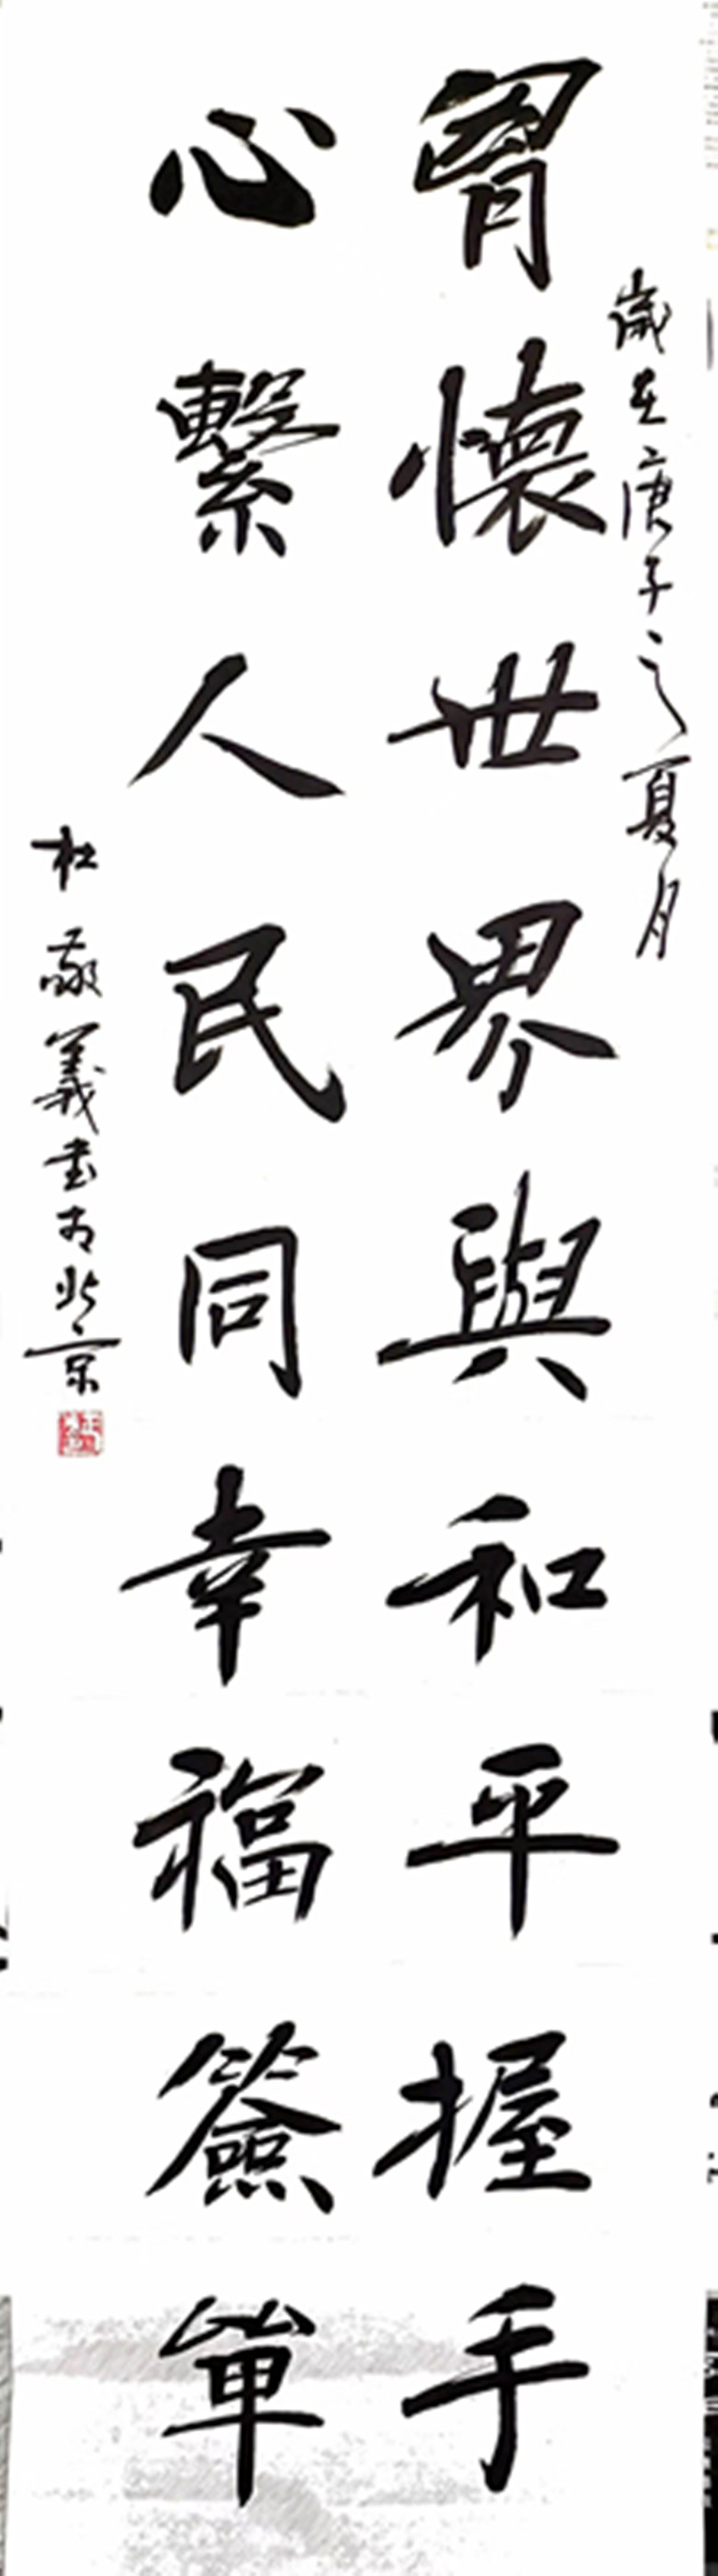 歲在庚子之夏月
胷懷世界與和平握手
心繫人民同幸福簽單
杜敬義書於北京